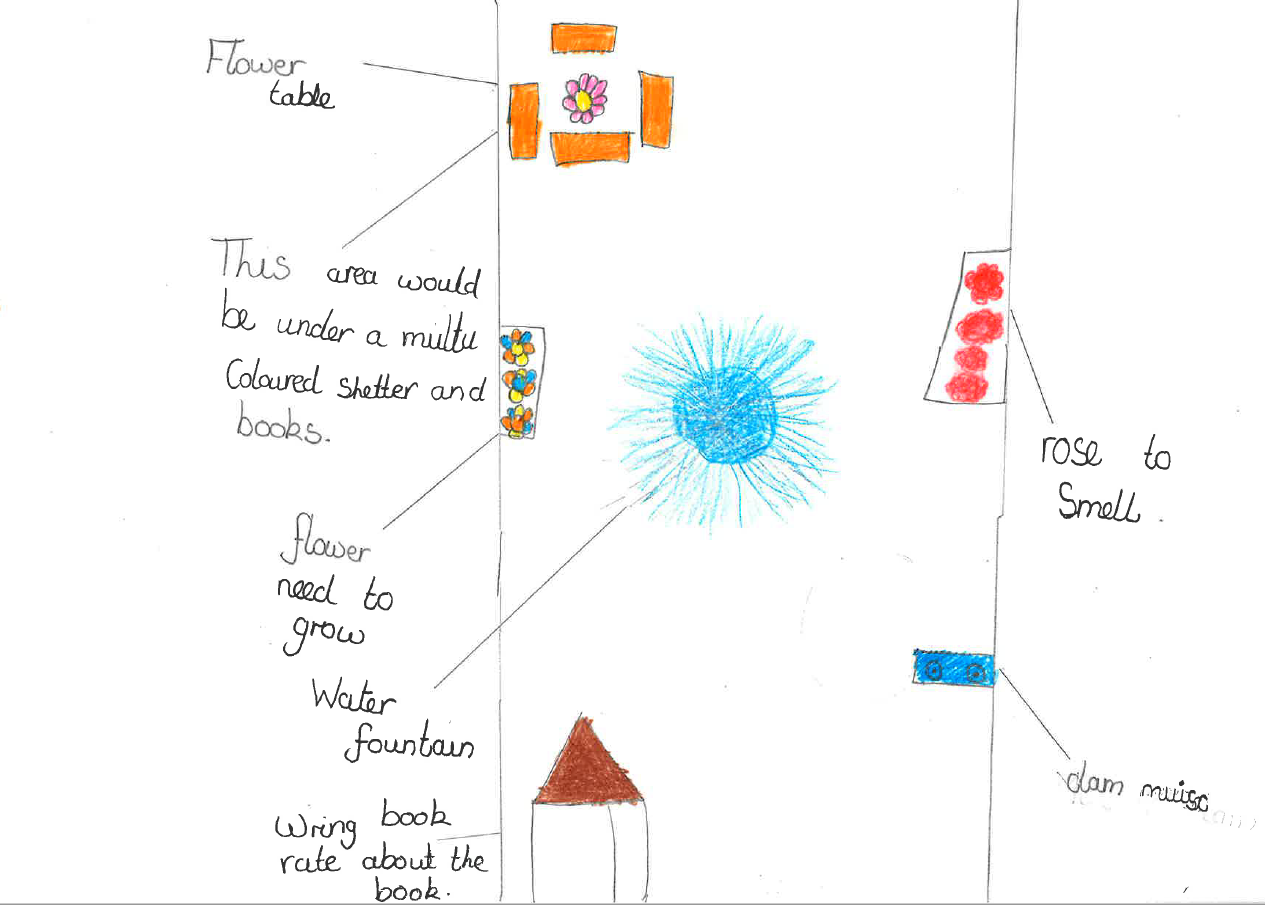 Flower
table
This area would
be under a multu
Coloured shetter and
books.
flower
need to
grow
Water
fountain
Wring book
rate about the
book.
rose to
Smell.
clam muisc